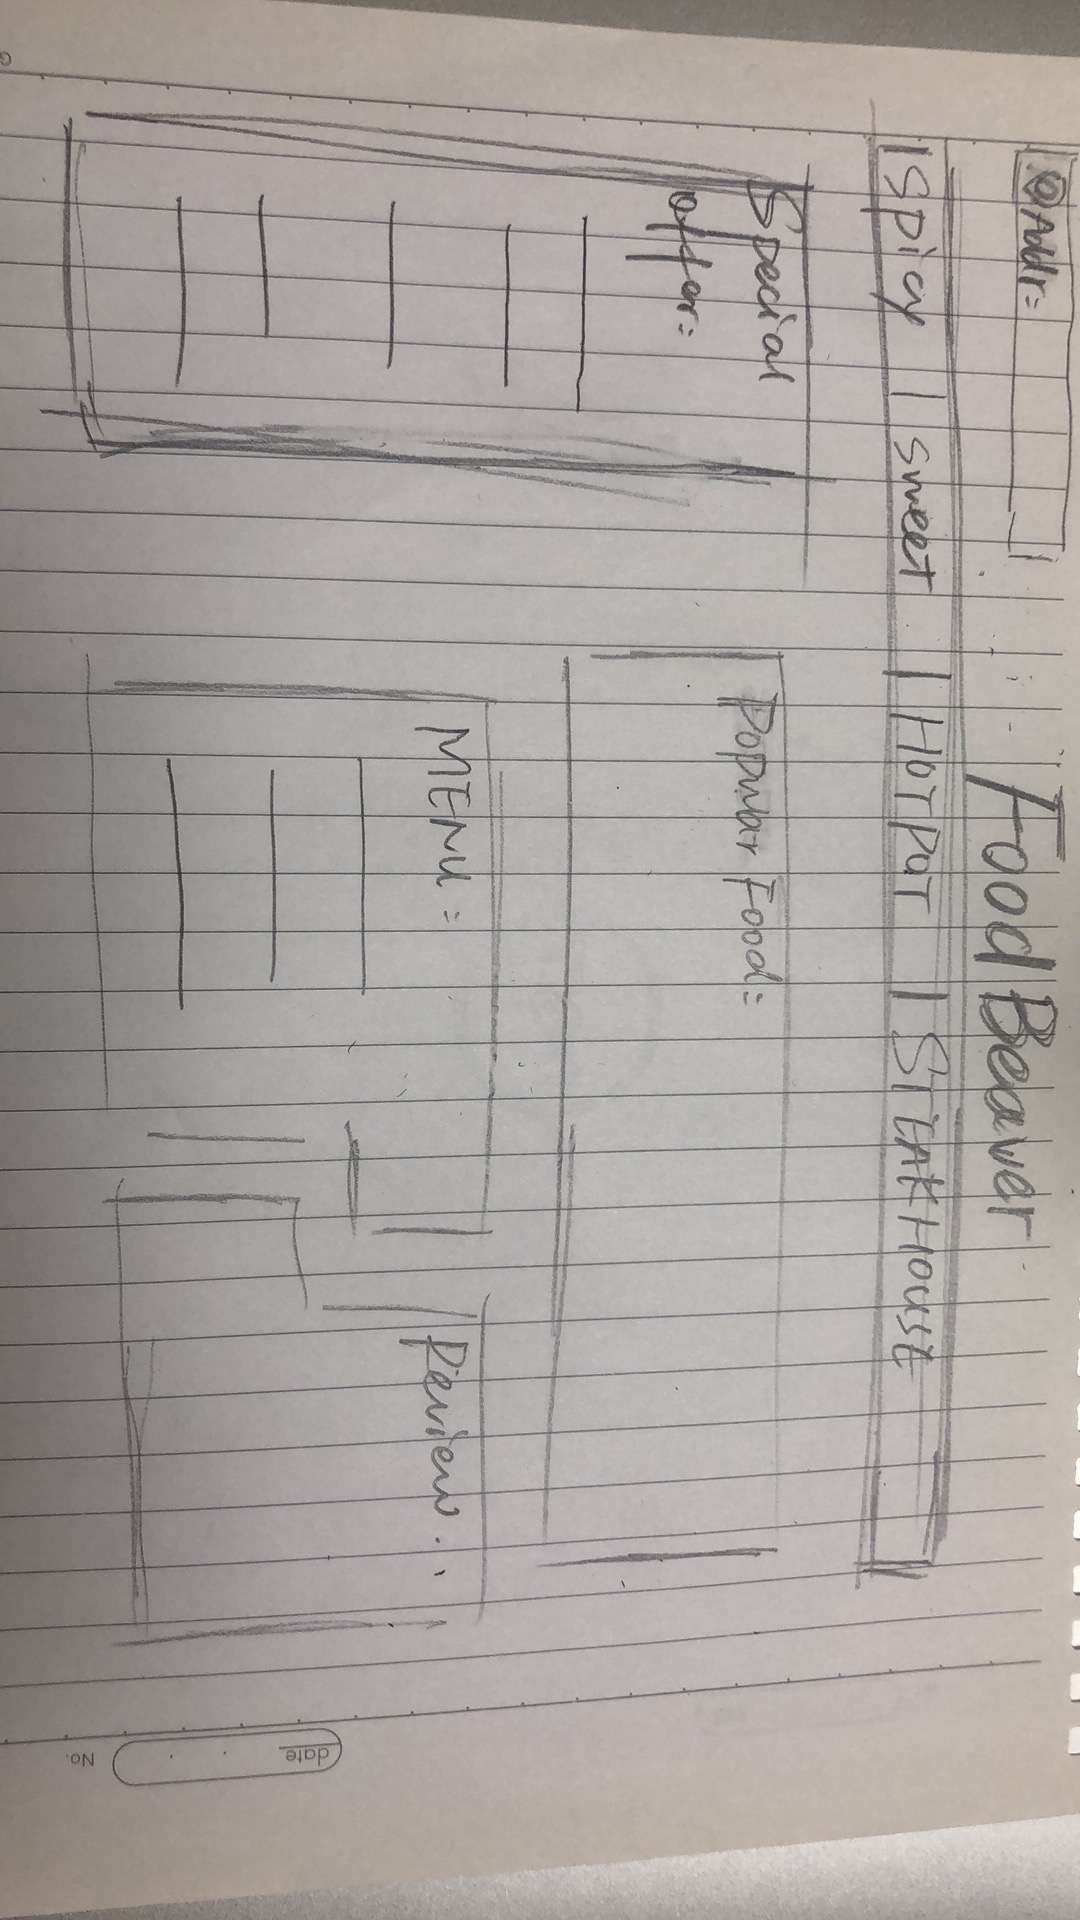 Food Beaver
Addr:
Spicy | sweet | HOTPOT | STEAKHOUSE
Special
offer:
Popular Food:
MENU:
Review.
date
No.